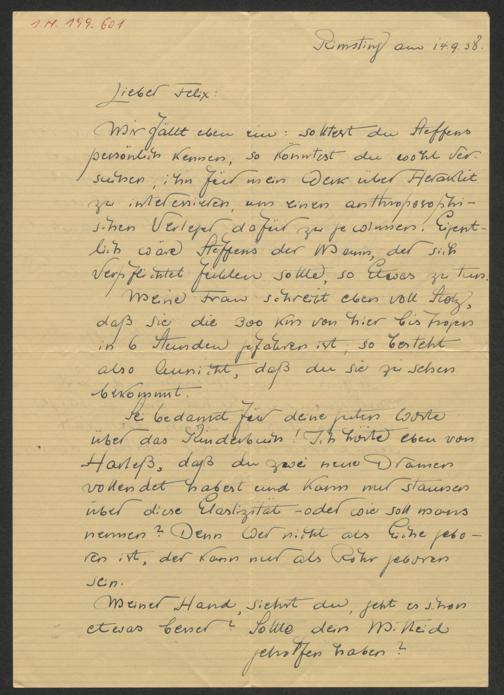 I.N. 199.601
Rimsting am 14.9.38.
Lieber Felix:
Mir fällt eben ein: solltest du Steffens
persönlich kennen, so könntest du wohl ver-
suchen, ihn für mein Werk über Heraklit
zu interessieren, um einen anthroposophi-
schen Verleger dafür zu gewinnen. Eigent-
lich wäre Steffens der Mann, der sich
verpflichtet fühlen sollte, so Etwas zu tun.
Meine Frau schreibt eben voll Stolz,
daß sie die 300 km von hier bis
in 6 Stunden gefahren ist, so besteht
also Aussicht, daß du sie zu sehen
bekommst.
Sei bedankt für deine guten Worte
über das Kinderbuch! Ich hörte eben von
Harleß, daß du zwei neue Dramen
vollendet habest und kann nur staunen
über diese Elastizität – oder wie soll mans
nennen? Denn wer nicht als Eiche gebo-
ren ist, der kann nur als Rohr geboren
sein.
Meiner Hand, siehst du, geht es schon
etwas besser? Sollte dein Mitleid
geholfen haben?